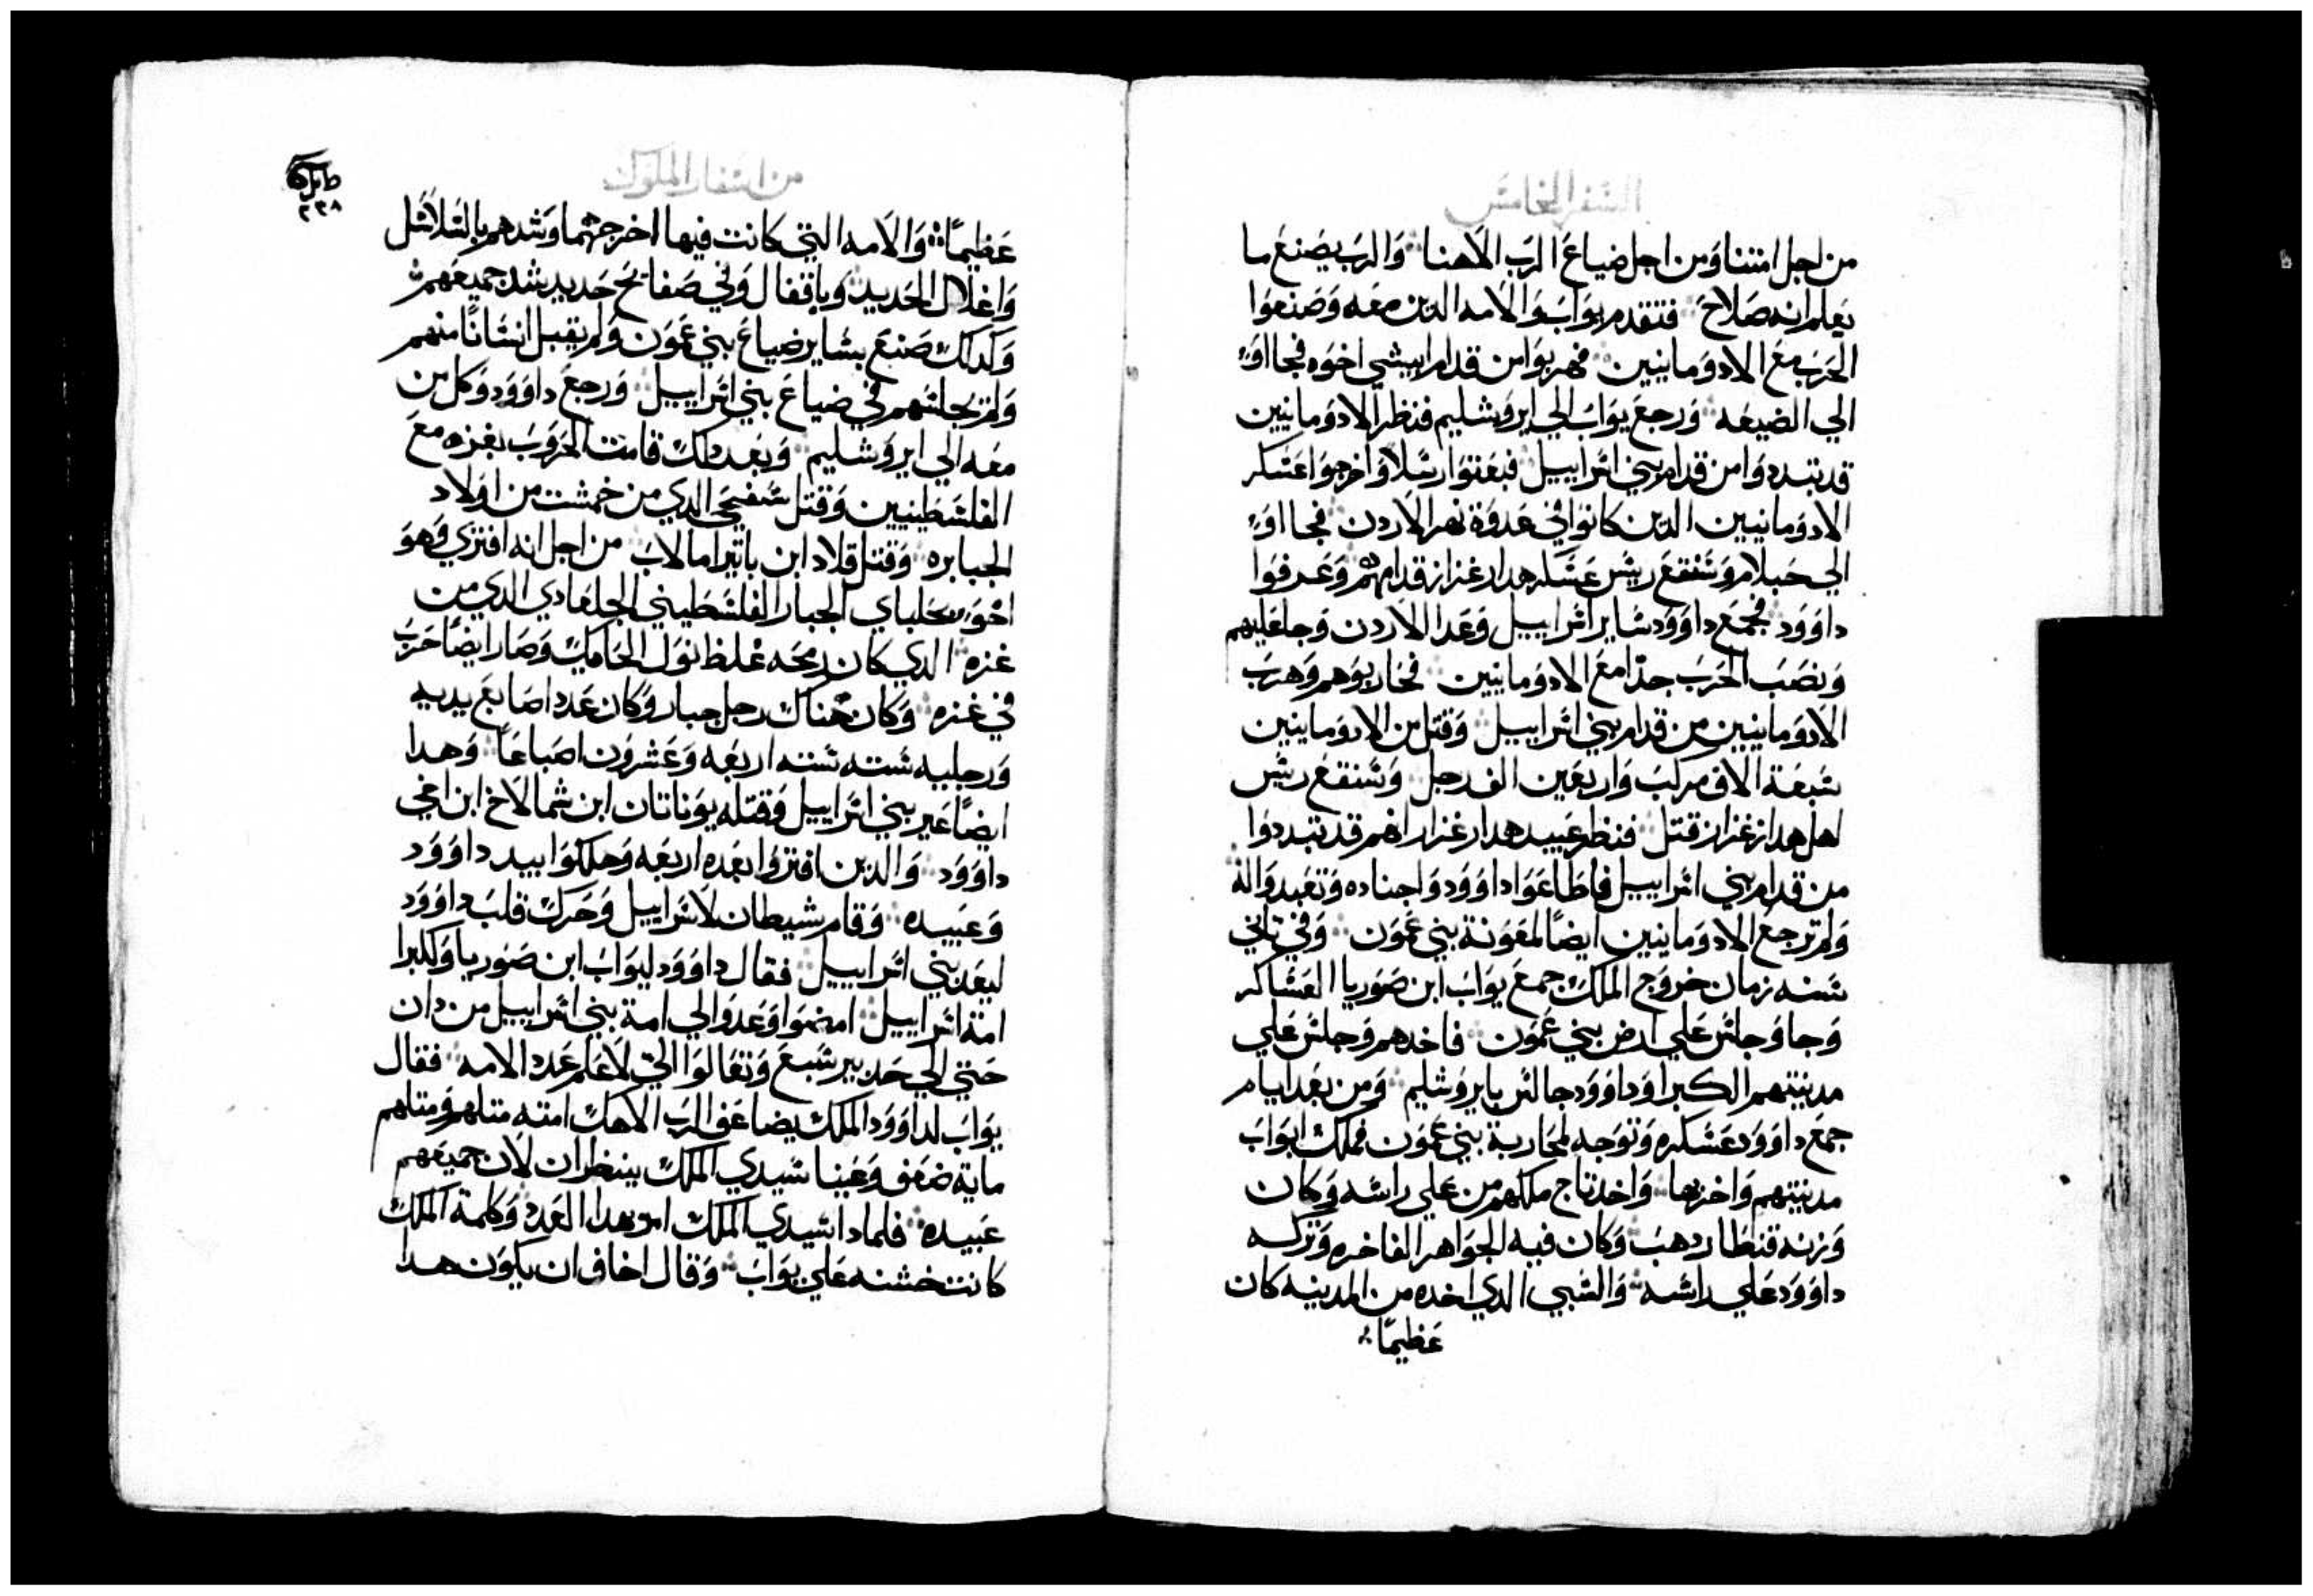 السفر الخامس
من اجل امتنا ومن اجل ضياع الرب الاهنا والرب يصنع ما
يعلم انه صلاح فتقدم يواب والامه الدين معه وصنعوا
الحرب مع الادومانيين فهربوا من قدام ابيشي اخوه فجااو
الي الضيعه ورجع يواب الي ايروشليم فنظر الادومانيين
قد تبددوا من قدام بني اسراييل فبعتوا رسلا واخرجوا عسكر
الادومانيين الدين كانوا في عدوة نهر الاردن فجااو
الي حيلام وسنقع ريس عسكر هدارعزار قدامهم وعرفوا
داوود فجمع داوود ساير اسراييل وعدا الاردن وجا عليهم
ونصب الحرب جدا مع الادومانيين فحاربوهم وهرب
الادومانيين من قدام بني اسراييل وقتل من الادومانيين
سبعة الاف مركب واربعين الف رجل وسنقع ريس
اهل هدارعزار قتل فنظر عبيد هدارعزار انهم قد تبددوا
من قدام بني اسراييل فاطاعوا داوود واجناده وتعبدوا له
ولم ترجع الادومانيين ايضا لمعونة بني عمون وفي تاني
سنه زمان خروج الملك جمع يواب ابن صوريا العساكر
وجا وجلس علي ارض بني عمون فاخدهم وجلس علي
مدينتهم الكبرا وداوود جالس بايروشليم ومن بعد ايام
جمع داوود عسكره وتوجه لمحاربة بني عمون فملك ابواب
مدينتهم واخربها واخد تاج ملكهم من علي راسه وكان
وزنه قنطار دهب وكان فيه الجواهر الفاخره وتركه
داوود علي راسه والسبي الدي اخده من المدينه كان
عظيما
من اسفار الملوك
٢٣٨
عظيما والامه التي كانت فيها اخرجهم وشدهم بالسلاسل
واغلال الحديد وباقفال وفي صفايح حديد شد جميعهم
وكدلك صنع بساير ضياع بني عمون ولم يقبل انسانا منهم
ولم يجلسهم في ضياع بني اسراييل ورجع داوود وكل من
معه الي ايروشليم وبعد دلك قامت الحروب بغزه مع
الفلسطينيين وقتل سفيحي الدي من خمست من اولاد
الجبابره وقتل قلاد ابن ياتير امالاب من اجل انه افتري وهو
اخو سحلباي الجبار الفلسطيني الجلعادي الدي من
غزه الدي كان رمحه غلظ نول الحامك وصار ايضا حرب
في غزه وكان هناك رجل جبار وكان عدد اصابع يديه
ورجليه سته سته اربعه وعشرون اصباعا وهدا
ايضا عير بني اسراييل وقتله يوناتان ابن شمالاخ ابن اخي
داوود والدين افتروا بعده اربعه وهلكوا بيد داوود
وعبيده وقام شيطان لاسراييل وحرك قلب داوود
ليعد بني اسراييل فقال داوود ليواب ابن صوريا وكبرا
امة اسراييل امضوا وعدوا لي امة بني اسراييل من دان
حتي الي حد بير سبع وتعالوا الي لاعلم عدد الامه فقال
يواب لداوود الملك يضاعف الرب الاهك امته متلهم ومتلهم
ماية ضعف وعينا سيدي الملك ينظران لان جميعهم
عبيده فلمادا سيدي الملك امر هدا العدد وكلمة الملك
كانت خشنه علي يواب وقال اخاف ان يكون هدا